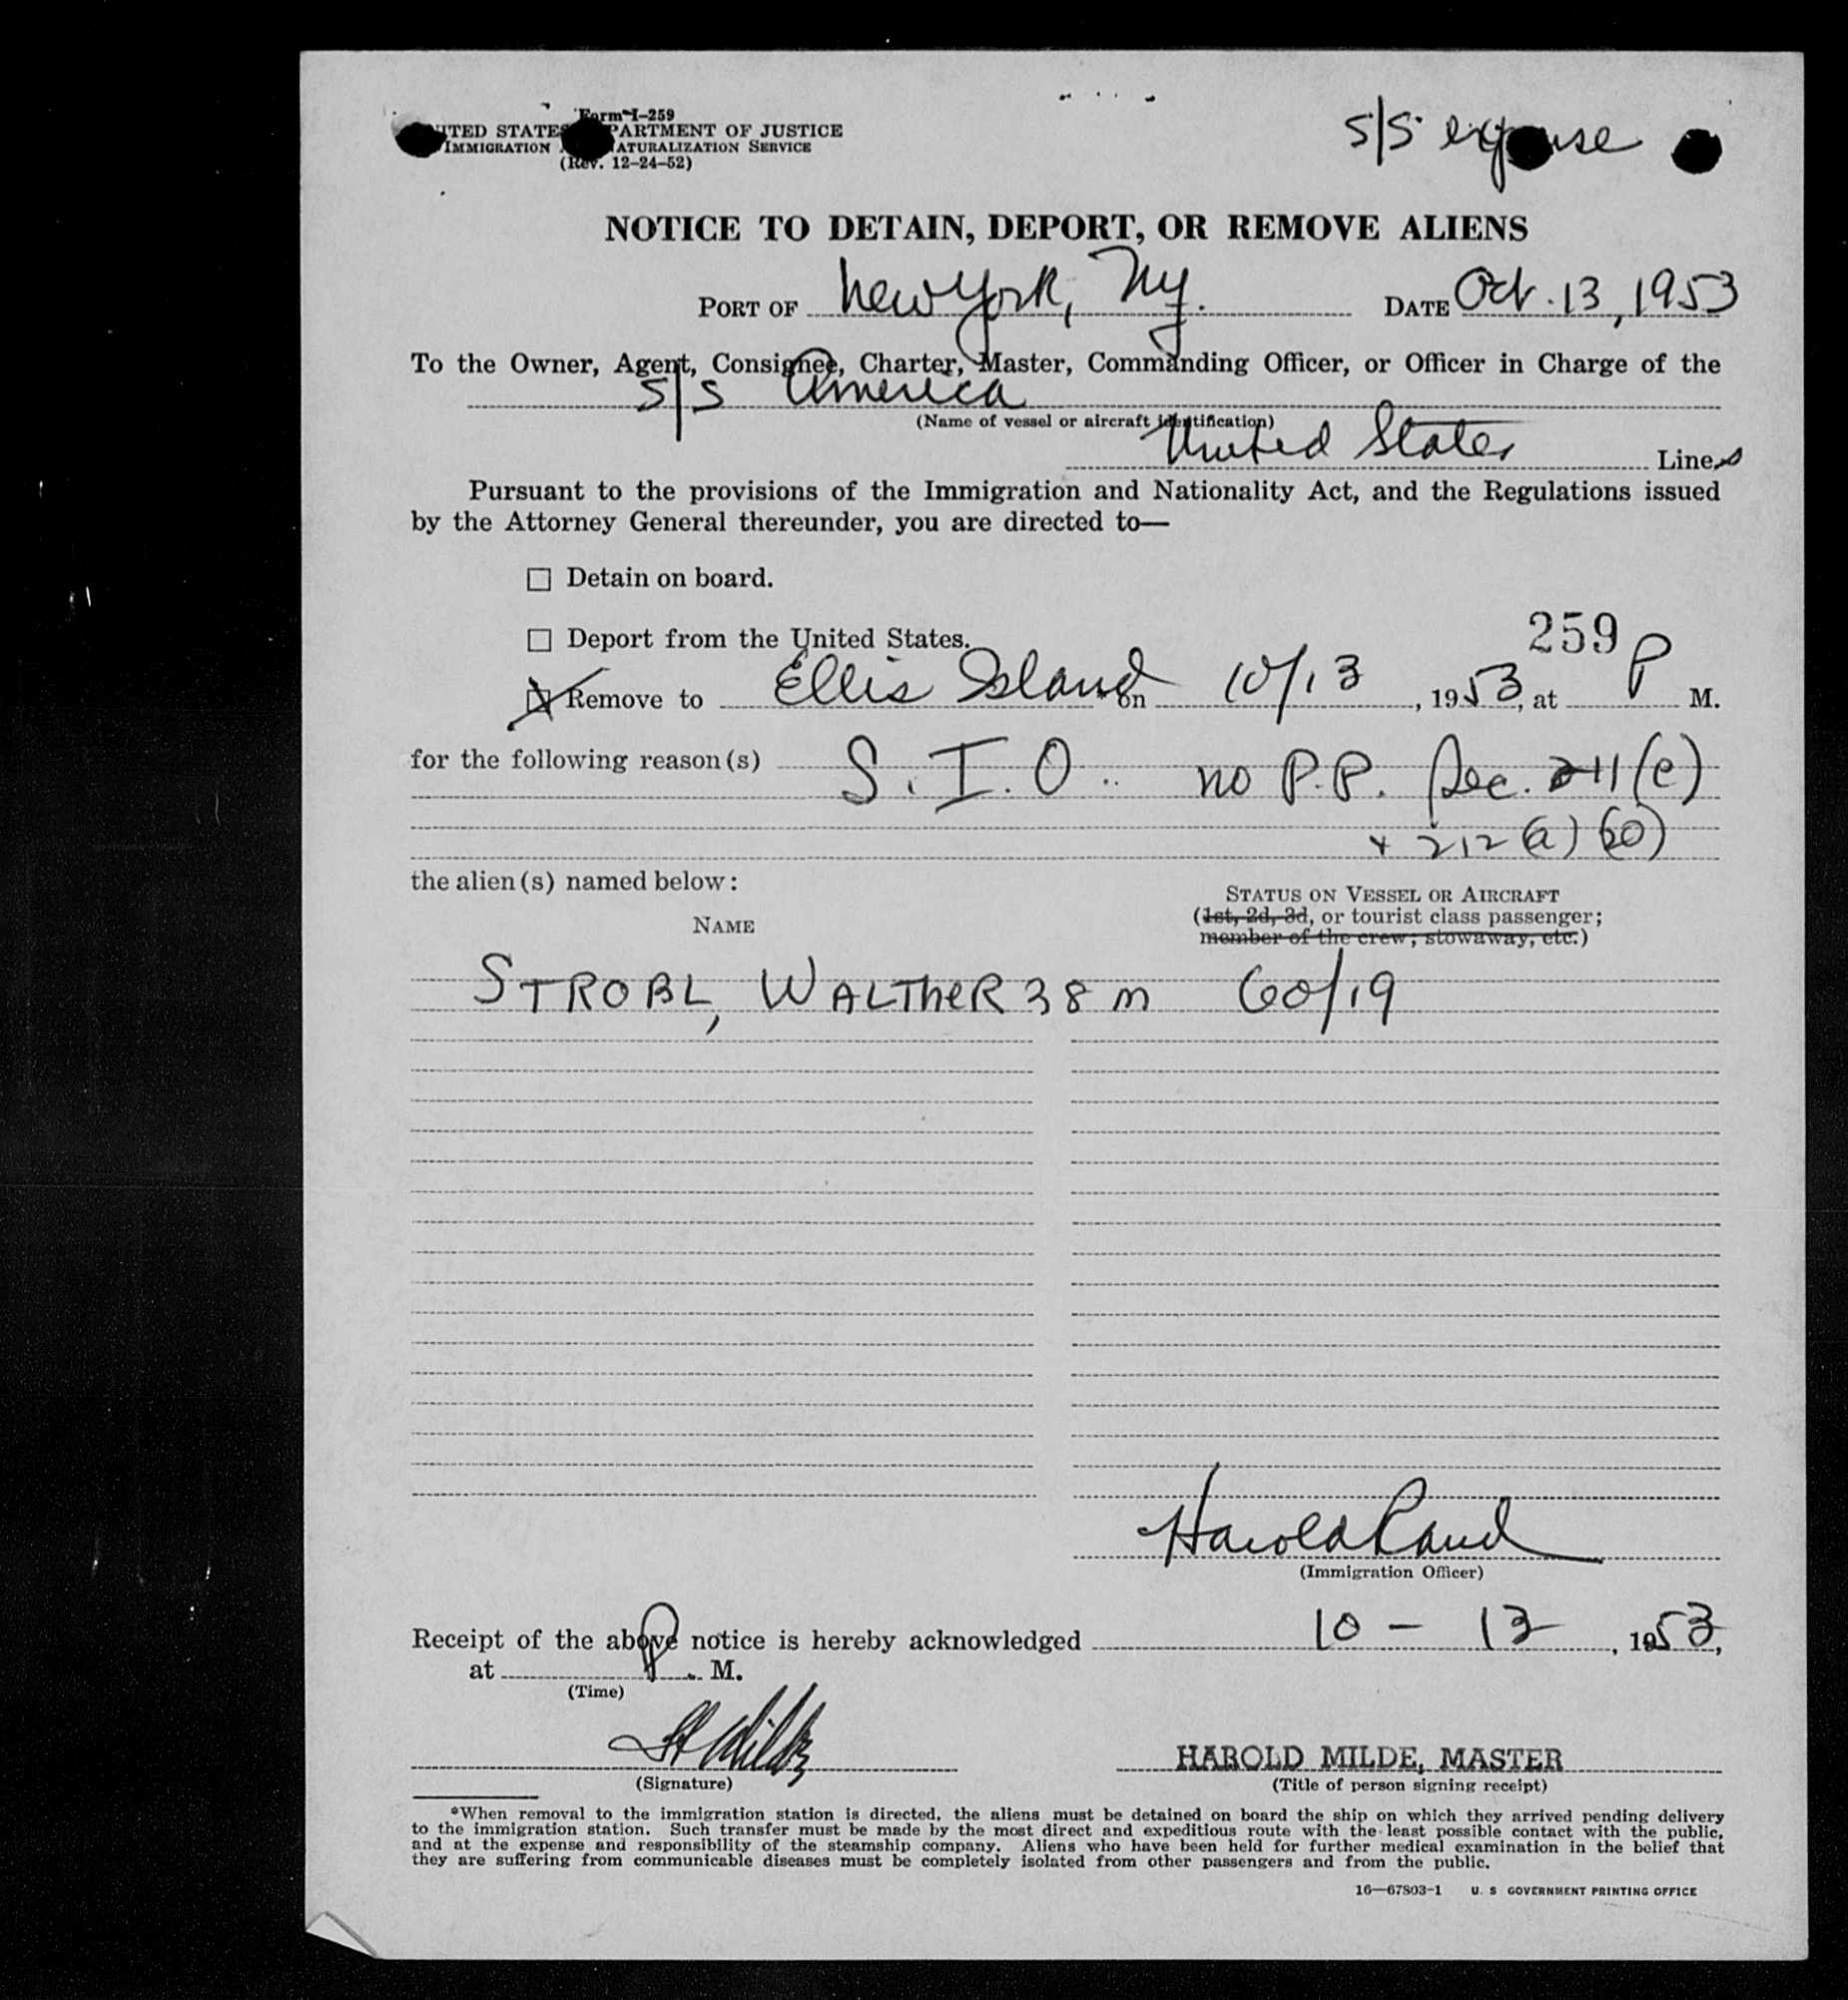 Form I-259
UNITED STATES DEPARTMENT OF JUSTICE
IMMIGRATION NATURALIZATION SERVICE
(Rev. 12-24-52)
S/S expense
NOTICE TO DETAIN, DEPORT, OR REMOVE ALIENS
PORT OF New York, Ny. DATE Oct. 13, 1953
To the Owner, Agent, Consignee, Charter, Master, Commanding Officer, or Officer in Charge of the
S/S America
(Name of vessel or aircraft identification)
United States Lines
Pursuant to the provisions of the Immigration and Nationality Act, and the Regulations issued
by the Attorney General thereunder, you are directed to—
☐ Detain on board.
☐ Deport from the United States.
259
☒ Remove to Ellis Island * on 10/13, 1953, at P M.
for the following reason(s) S.I.O. no P.P. Sec. 211(e)
+ 212 (a) (20)
the alien(s) named below:
NAME
STATUS ON VESSEL OR AIRCRAFT
(1st, 2d, 3d, or tourist class passenger;
member of the crew; stowaway, etc.)
STROBL, WALTHER 38 m 60/19
Harold Rand
(Immigration Officer)
Receipt of the above notice is hereby acknowledged 10 - 13, 1953,
at P. M.
(Time)
H Milde
HAROLD MILDE, MASTER
(Signature)
(Title of person signing receipt)
*When removal to the immigration station is directed, the aliens must be detained on board the ship on which they arrived pending delivery
to the immigration station. Such transfer must be made by the most direct and expeditious route with the least possible contact with the public,
and at the expense and responsibility of the steamship company. Aliens who have been held for further medical examination in the belief that
they are suffering from communicable diseases must be completely isolated from other passengers and from the public.
16—67803-1 U. S GOVERNMENT PRINTING OFFICE